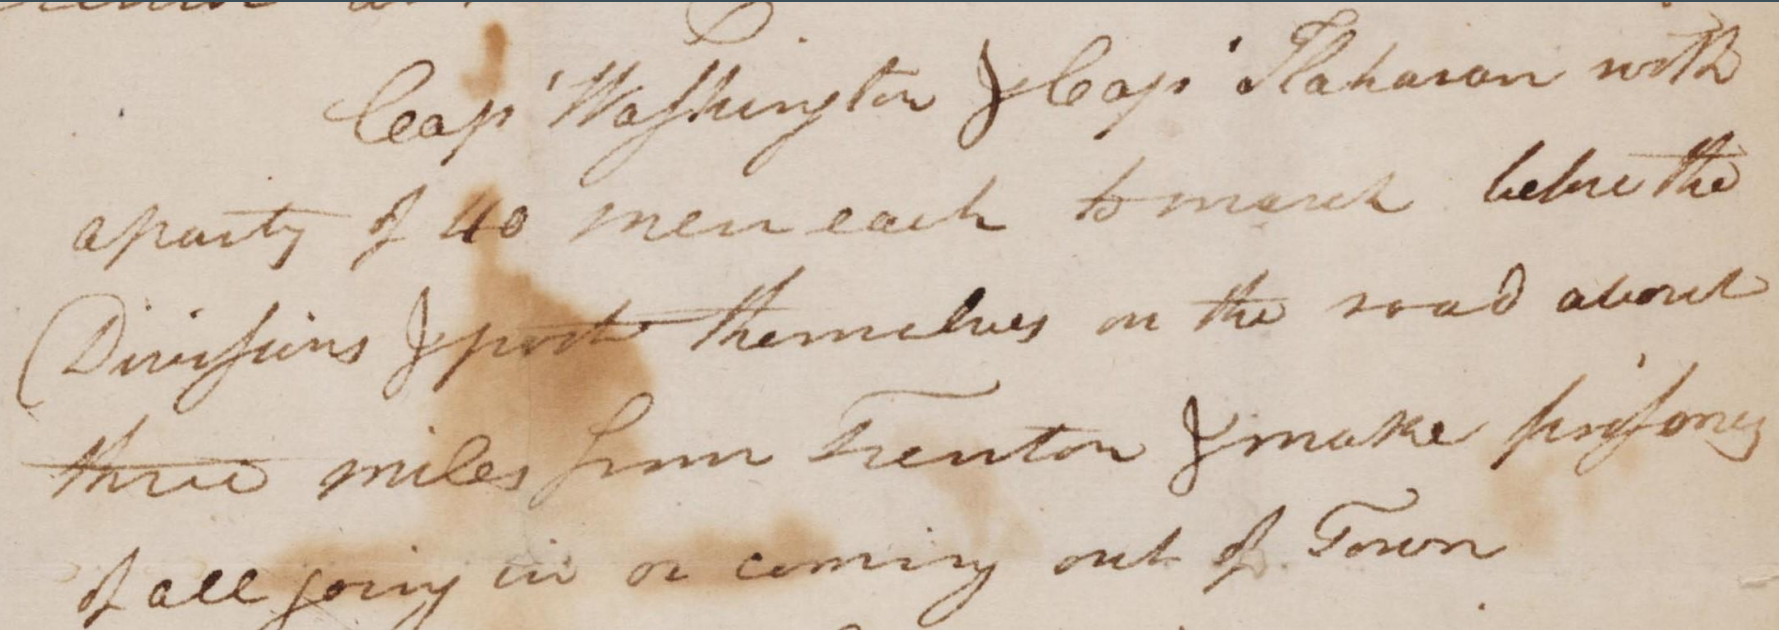 Cap' Washington & Cap' Flaharan with
a party of 40 men each to march before the
Divissions & post themselves on the road about
three miles from Trenton & make prisoners
of all going in or coming out of Town